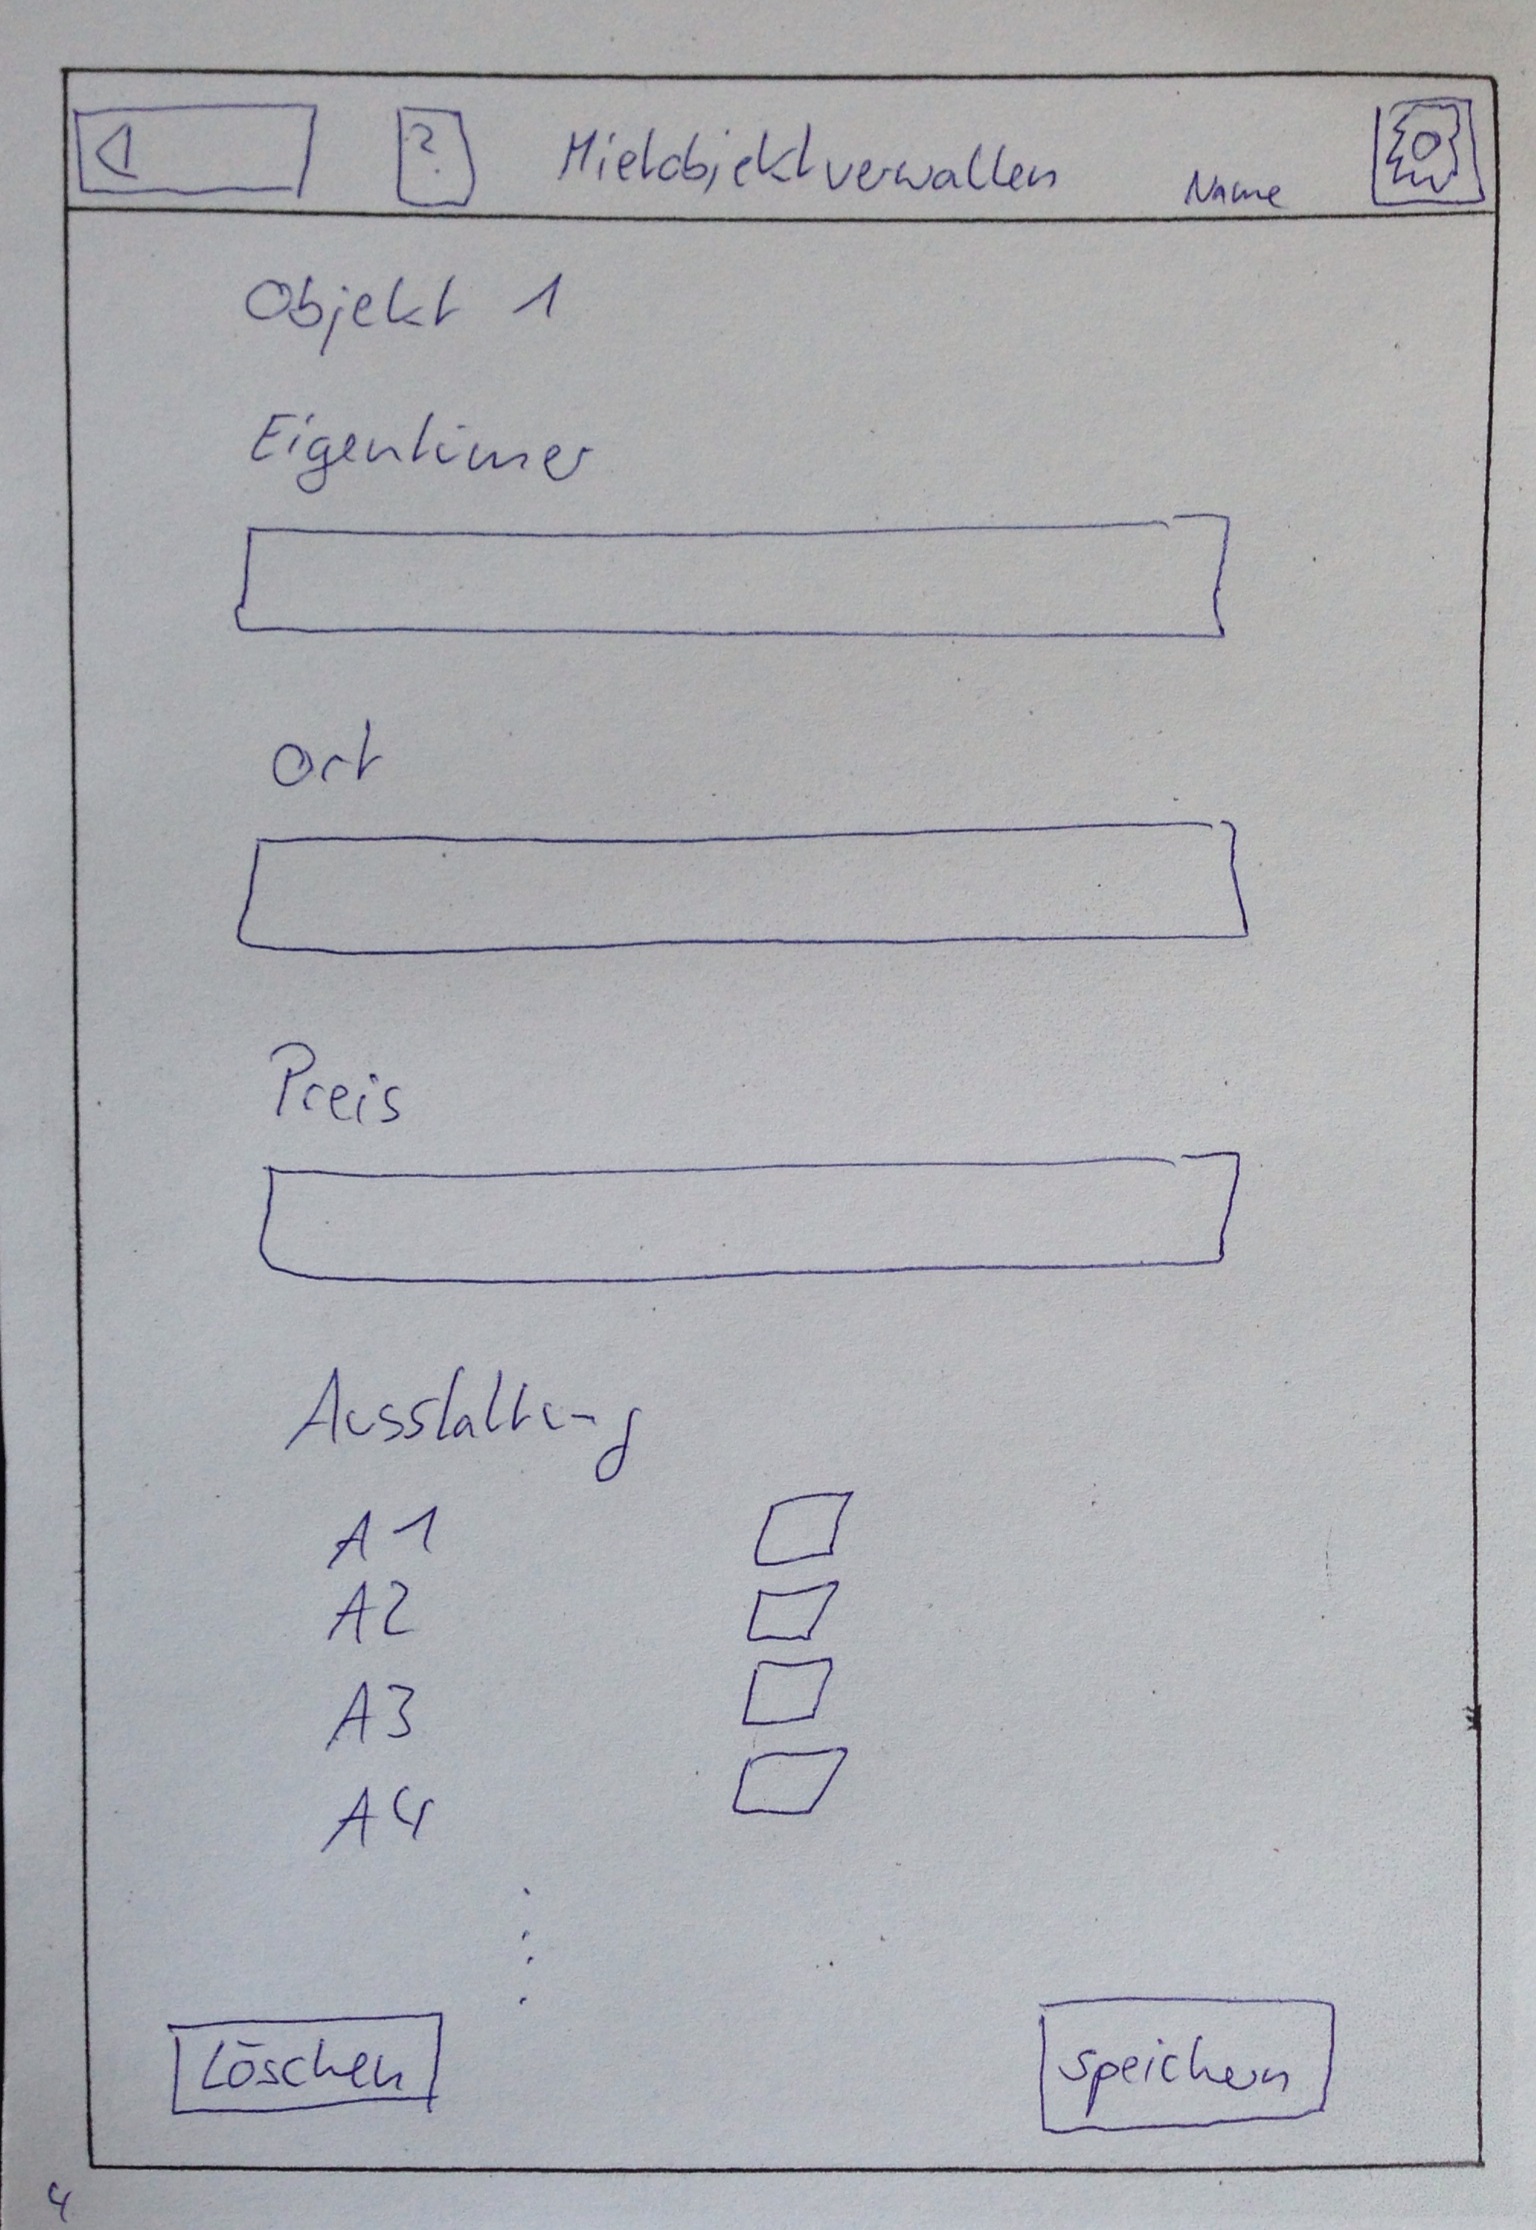 ? Mietobjekt verwalten Name
Objekt 1
Eigentümer
Ort
Preis
Ausstattung
A1
A2
A3
A4
Löschen speichern
4